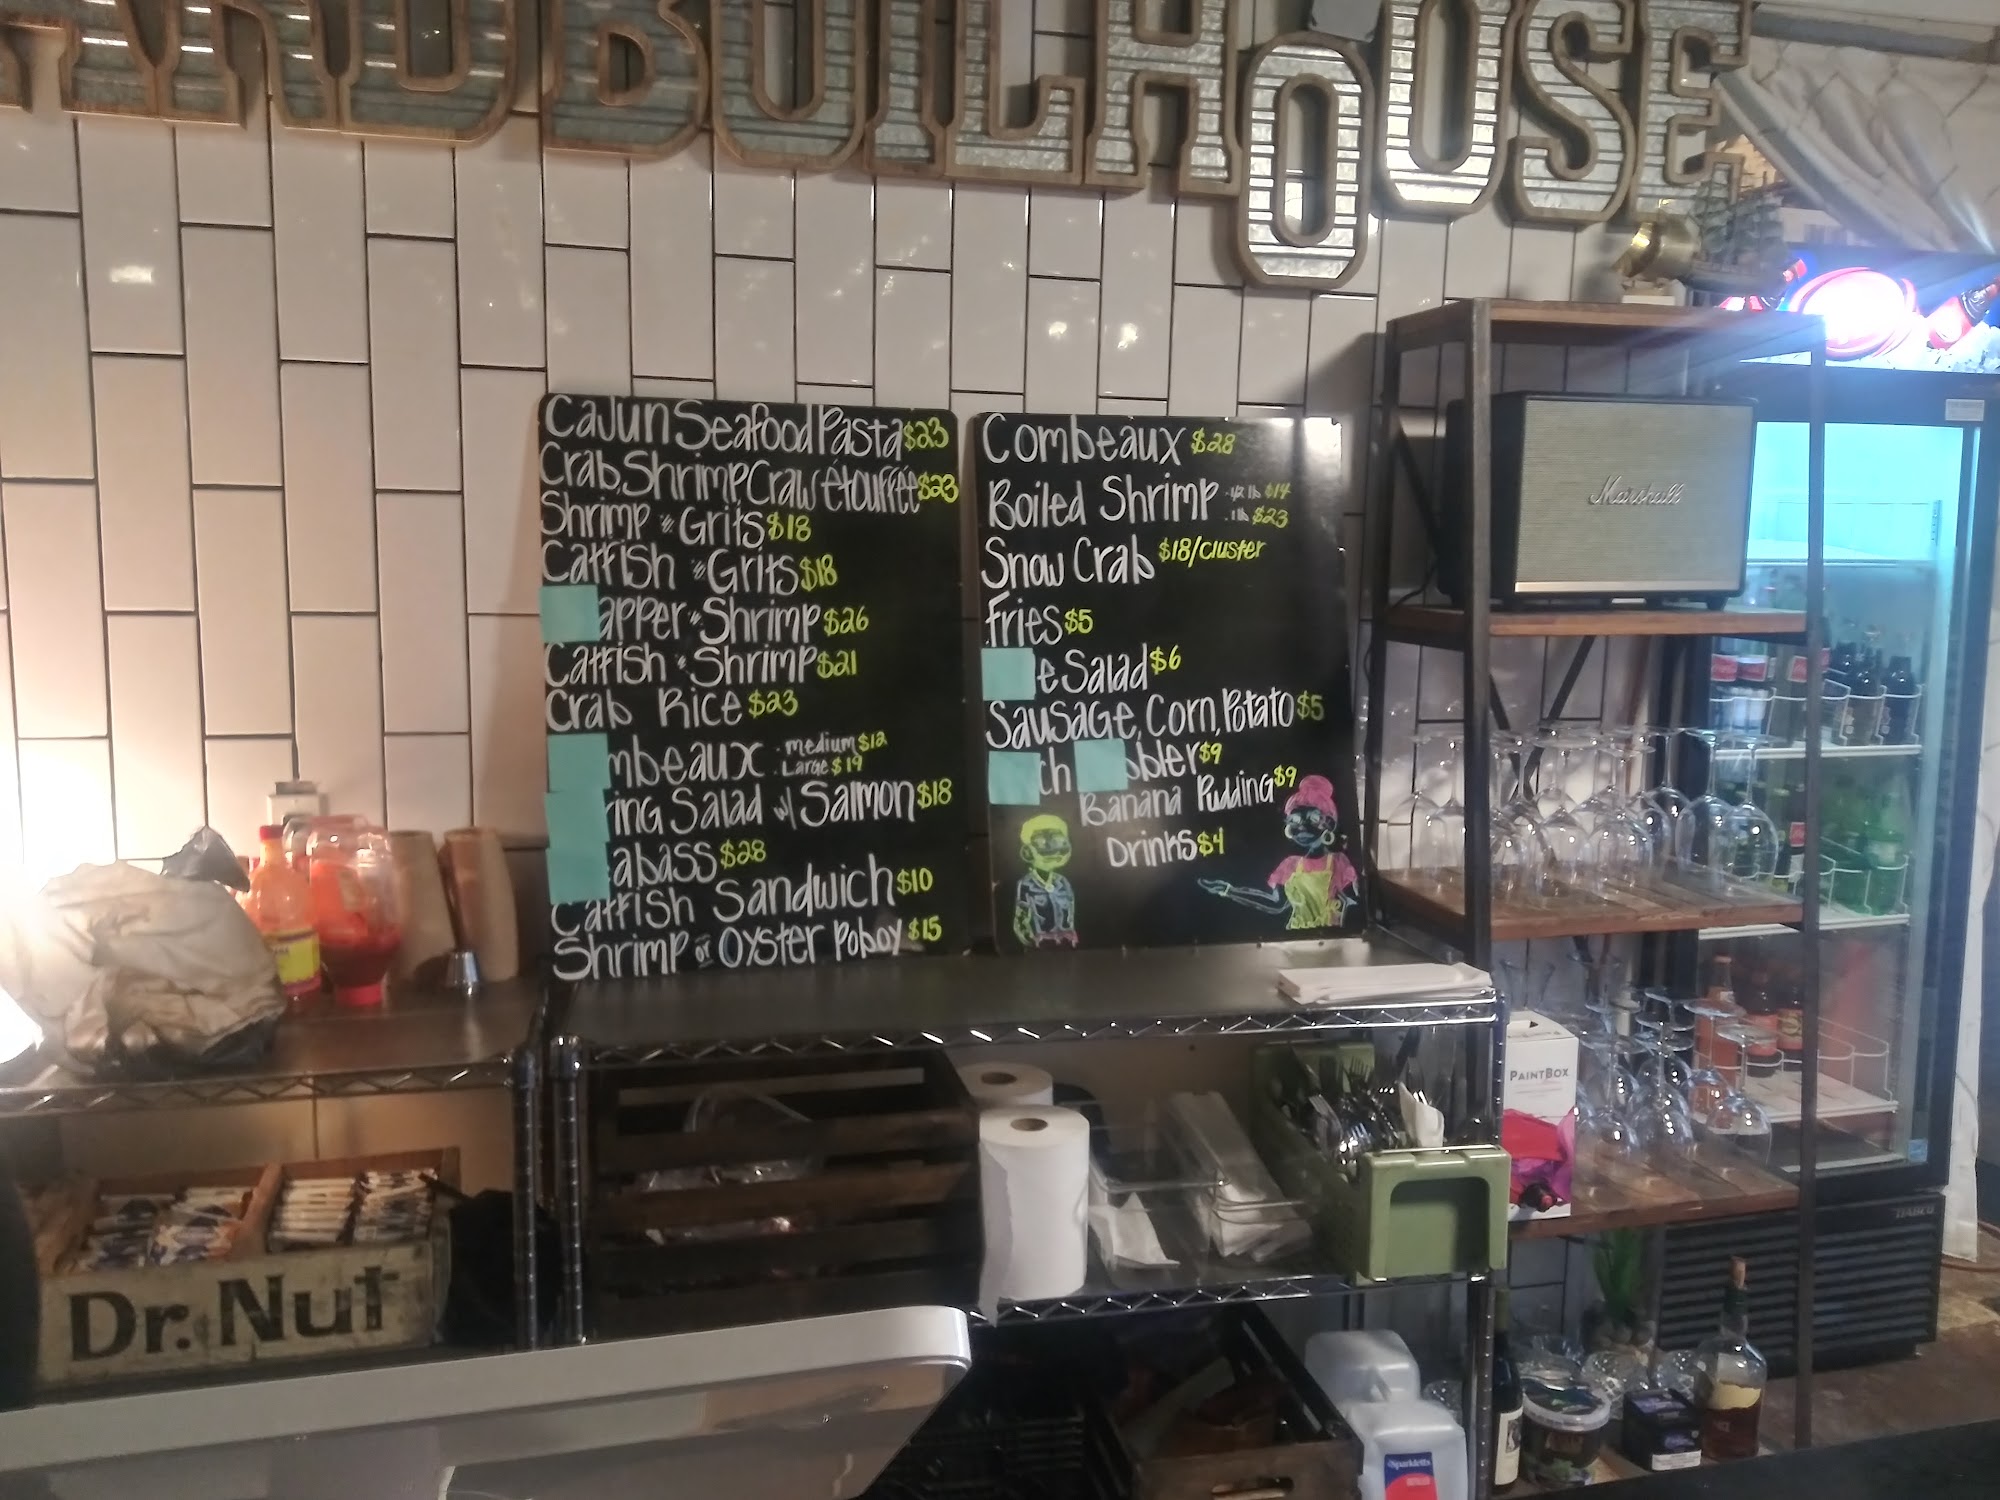 BOILHOUSE
Cajun Seafood Pasta $23
Crab, Shrimp, Craw étouffée $23
Shrimp & Grits $18
Catfish & Grits $18
apper & Shrimp $26
Catfish & Shrimp $21
Crab Rice $23
mbeaux . medium $12
. Large $19
ring Salad w/ Salmon $18
abass $28
Catfish Sandwich $10
Shrimp or Oyster Poboy $15
Combeaux $28
Boiled Shrimp . 1/2 lb $14
. 1 lb $23
Snow Crab $18/cluster
Fries $5
e Salad $6
Sausage, Corn, Potato $5
ch bbler $9
Banana Pudding $9
Drinks $4
Marshall
PAINTBOX
Dr. Nut
Sparkletts